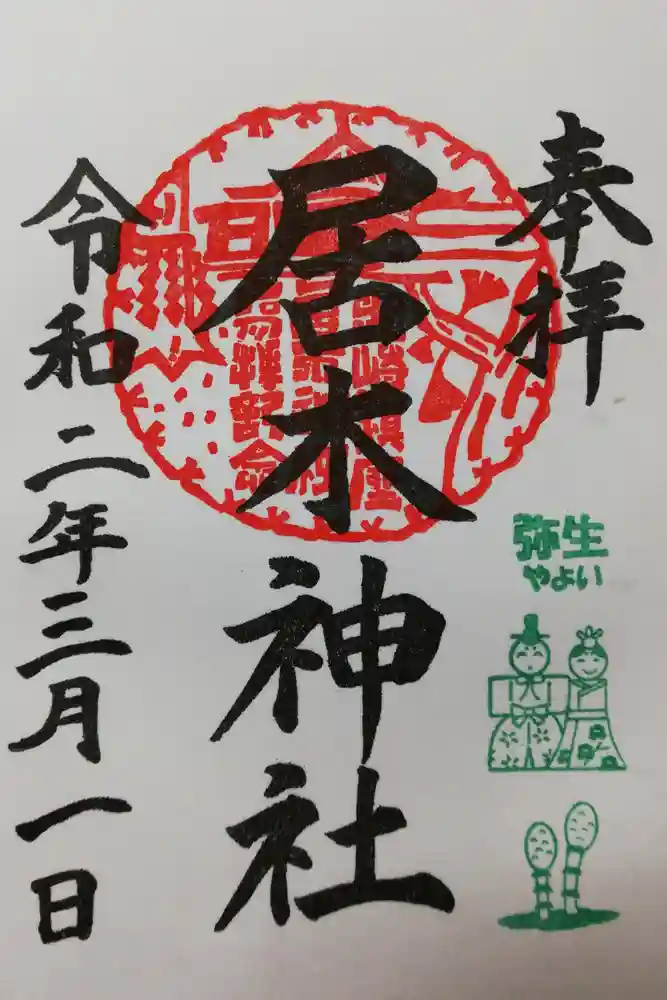 奉拝
居木神社
令和二年三月一日
弥生
やよい